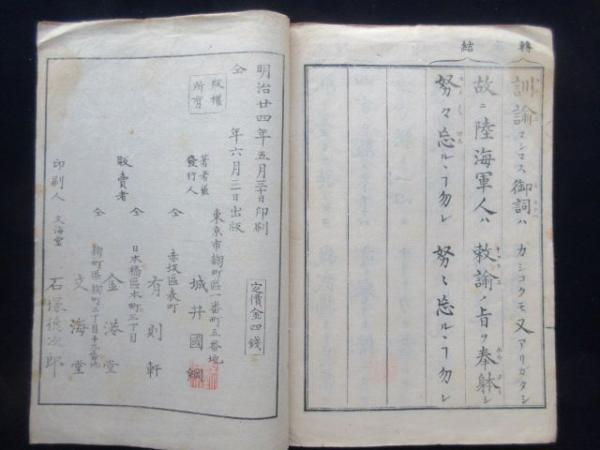 轉
結
訓諭マシマス御詞ハ カシコクモ又アリガタシ
故ニ陸海軍人ハ 敕諭ノ旨ヲ奉躰シ
努々忘ルヿ勿レ 努々忘ルヿ勿レ
明治廿四年五月三十日印刷
仝 年六月三日出版
版權所有
定價金四錢
著者兼發行人
東京市麹町區一番町五番地
城井國綱
赤坂區表町
仝 有則軒
販賣者
日本橋區本町三丁目
仝 金港堂
麹町區麹町二丁目
文海堂
印刷人 文海堂
石塚徳次郎